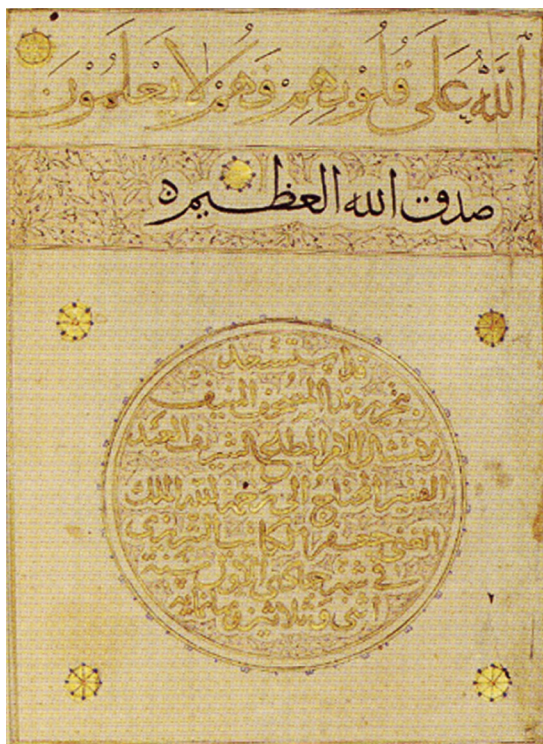 اللَّهُ عَلَى قُلُوبِهِمْ فَهُمْ لَا يَعْلَمُونَ
صدق الله العظيم
قد استسعد
بتحرير هذا المصحف المنيف
لامتثال الامر المطاع الشريف العبد
الفقير المحتاج الى رحمة الله الملك
الغنى جعفر الكاتب التبريزى
فى شهر جمادى الاولى سنة
اثنى وثلاثين